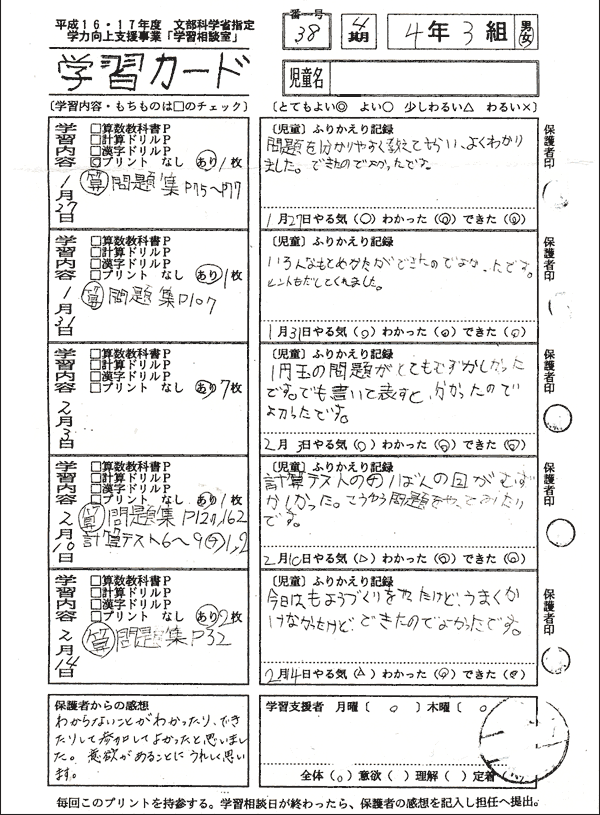 平成16・17年度 文部科学省指定
学力向上支援事業「学習相談室」
学習カード
番号
38
4期
4年3組 男 女
児童名
〔学習内容・もちものは□のチェック〕
〔とてもよい◎ よい○ 少しわるい△ わるい×〕
学習内容
1月27日
□算数教科書P
□計算ドリルP
□漢字ドリルP
□プリント なし あり 1枚
算 問題集P75～P77
〔児童〕ふりかえり記録
問題を分かりやすく教えてもらい、よくわかり
ました。できたのでよかったです。
1月27日やる気(○) わかった(◎) できた(◎)
保護者印
学習内容
1月31日
□算数教科書P
□計算ドリルP
□漢字ドリルP
□プリント なし あり 1枚
算 問題集P107
〔児童〕ふりかえり記録
いろんなもとめかたができたのでよかったです。
ヒントもだしてくれました。
1月31日やる気(○) わかった(◎) できた(○)
保護者印
学習内容
2月3日
□算数教科書P
□計算ドリルP
□漢字ドリルP
□プリント なし あり 7枚
〔児童〕ふりかえり記録
1円玉の問題がとてもむずかしかった
です。でも書いて表すと、分かったので
よかったです。
2月3日やる気(○) わかった(◎) できた(◎)
保護者印
学習内容
2月10日
□算数教科書P
□計算ドリルP
□漢字ドリルP
□プリント なし あり 1枚
算 問題集P127,162
計算テスト6～9 1,2
〔児童〕ふりかえり記録
計算テストの 1ばんの 回がむず
かしかった。 問題を
です。
2月10日やる気(△) わかった(◎) できた(◎)
保護者印
学習内容
2月14日
□算数教科書P
□計算ドリルP
□漢字ドリルP
□プリント なし あり 2枚
算 問題集P32
〔児童〕ふりかえり記録
今日は、もようづくりをやったけど、うまくか
けなかったけど、できたのでよかったです。
2月4日やる気(△) わかった(◎) できた(◎)
保護者印
保護者からの感想
わからないことがわかったり、でき
たりして参加してよかったと思いまし
た。意欲があることにうれしく思い
ます。
学習支援者 月曜〔 ○ 〕木曜〔 ○
全体(○) 意欲( ) 理解( ) 定着(
毎回このプリントを持参する。学習相談日が終わったら、保護者の感想を記入し担任へ提出。